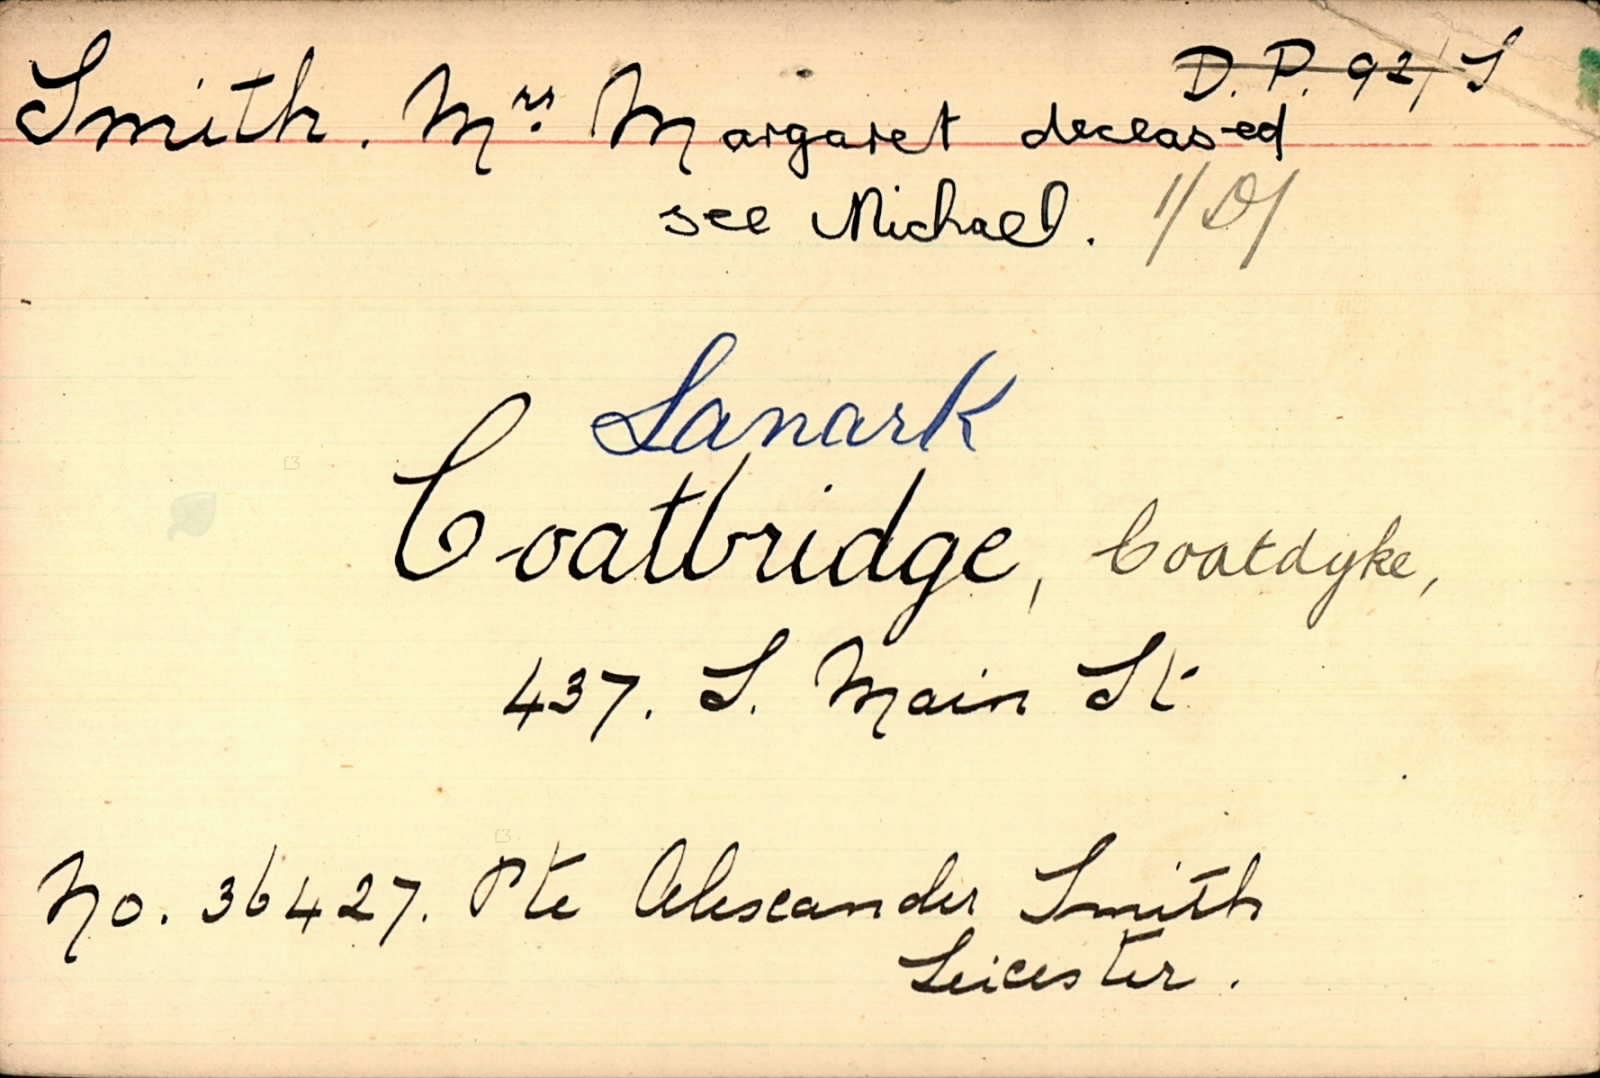 D. P. 92/S
Smith. Mrs. Margaret deceased
see Michael. 1/D/
Lanark
Coatbridge, Coatdyke,
437. S. Main St
No. 36427. Pte Alexander Smith
Leicester.